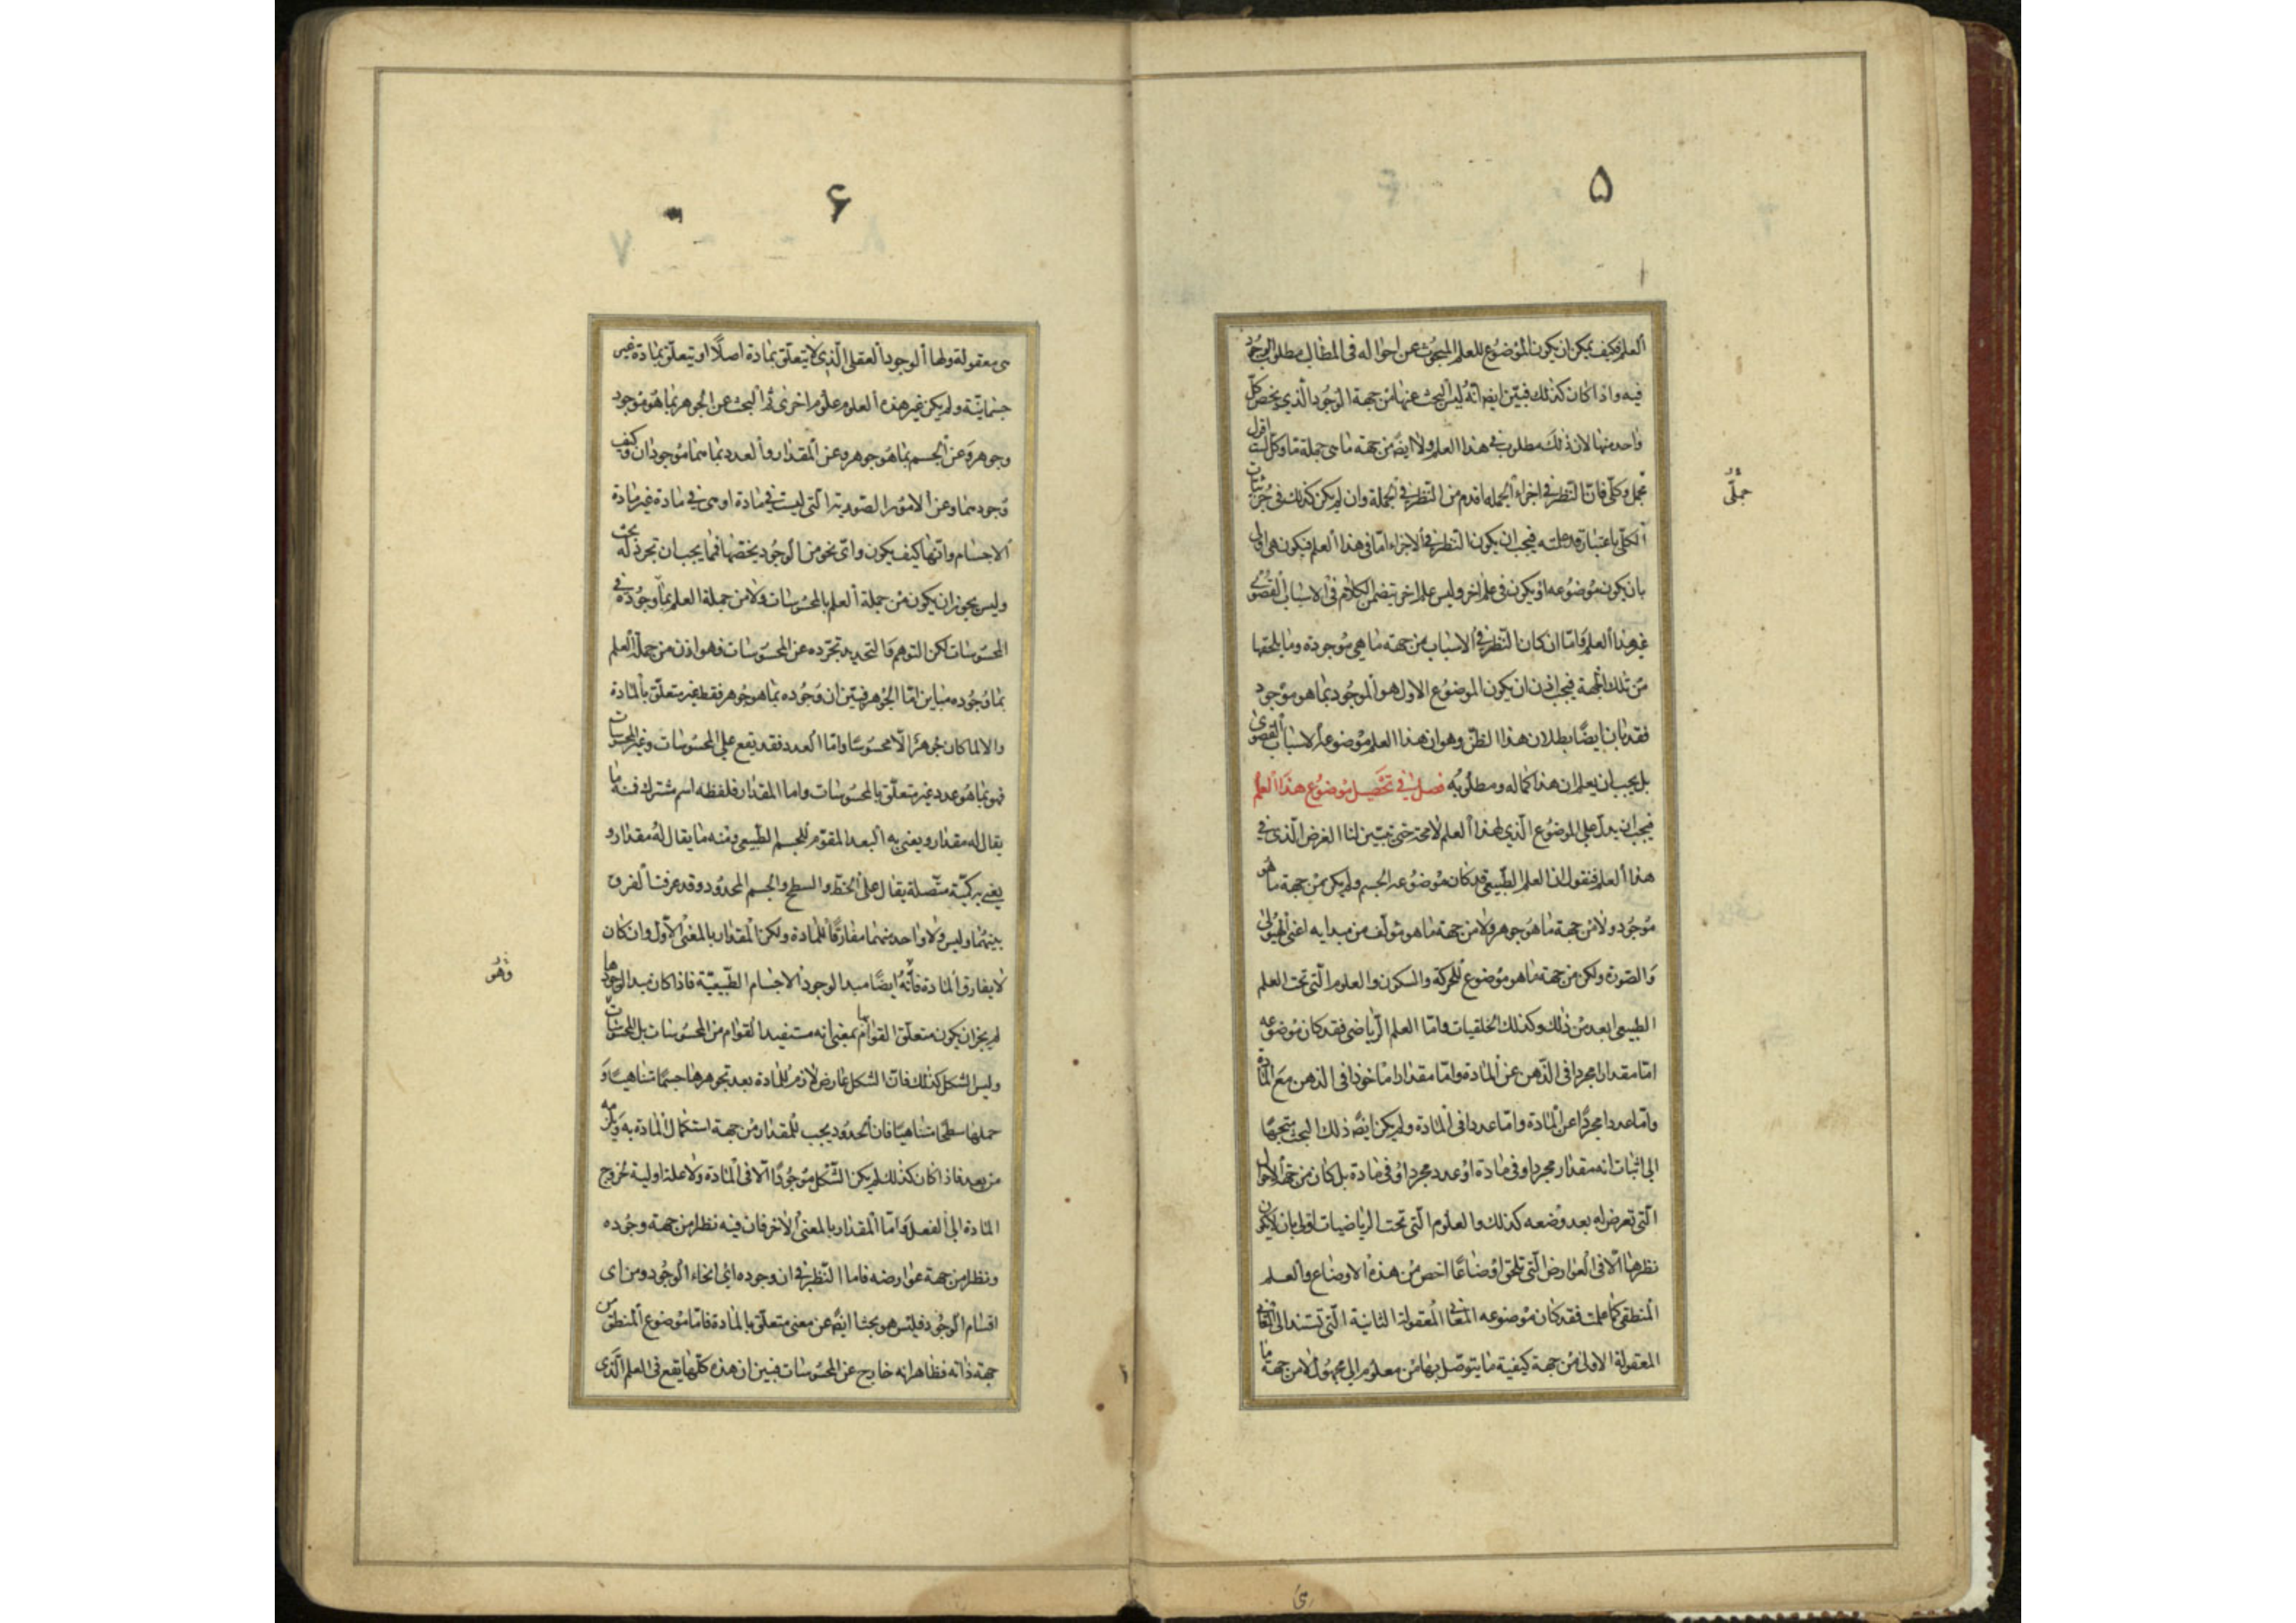 ۵
العلم فكيف يمكن ان يكون الموضوع للعلم المبحوث عن احواله فى المطالب مطلوب الوجود
فيه واذا كان كذلك فبيّن ايضه انّه ليس البحث عنها من جهة الوجود الّذى يخص كلّ
واحد منها لان ذلك مطلوب فى هذا العلم ولا ايضه من جهة ما هى جملة ما وكلّ لست اقول
مجمل وكلّى فانّ النّظر فى اجزاء الجمله اقدم من النّظر فى الجملة وان لم يكن كذلك فى جزئيّات
جملىّ
الكلّى باعتبار قد علمته فيجب ان يكون النّظر فى الاجزاء امّا فى هذا العلم فيكون هى اولى
بان يكون موضوعه او يكون فى علم اخر وليس علم اخر يتضمن الكلام فى الاسباب القصوى
غير هذا العلم فامّا ان كان النّظر فى الاسباب من جهة ما هى موجودة وما يلحقها
من تلك الجهة فيجب اذن ان يكون الموضوع الاول هو الموجود بما هو موجود
فقد بان ايضًا بطلان هذا الظنّ وهو ان هذا العلم موضوعه الاسباب القصوى
بل يجب ان يعلم ان هذا كماله ومطلوبه فصل فى تحصيل موضوع هذا العلم
فيجب ان يدلّ على الموضوع الّذى لهذا العلم لا محة حتى يتبيّن لنا الغرض الّذى فى
هذا العلم فنقول انّ العلم الطّبيعى قد كان موضوعه الجسم ولم يكن من جهة ما هو
موجود ولا من جهة ما هو جوهر ولا من جهة ما هو مؤلف من مبدايه اعنى الهيولى
والصّورة ولكن من جهة ما هو موضوع للحركة والسكون والعلوم الّتى تحت العلم
الطبيعى ابعد من ذلك وكذلك الخلقيات وامّا العلم الرّياضى فقد كان موضوعه
امّا مقدارا مجردا فى الذّهن عن المادة وامّا مقدارا ماخوذا فى الذهن مع المادة
وامّا عددا مجردًا عن المادة وامّا عددا فى المادة ولم يكن ايضه ذلك البحث متجها
الى اثبات انه مقدار مجرد او فى مادة او عدد مجرد او فى مادة بل كان من جهة الاحوال
الّتى تعرض له بعد وضعه كذلك والعلوم الّتى تحت الرياضيات اولى بان لا يكون
نظرها الّا فى العوارض الّتى تلحق اوضاعًا اخص من هذه الاوضاع والعلم
المنطقى كما علمت فقد كان موضوعه المعانى المعقولة الثانية الّتى تستند الى المعانى
المعقولة الاولى من جهة كيفية ما يتوصّل بها من معلوم الى مجهول لا من جهة ما
ى
۶
هى معقولة ولها الوجود العقلى الّذى لا يتعلّق بمادة اصلًا او يتعلّق بمادة غير
جسمانيّة ولم يكن غير هذه العلوم علوم اخرى ثم البحث عن الجوهر بما هو موجود
وجوهر وعن الجسم بما هو جوهر وعن المقدار والعدد بما هما موجودان وكيف
وجودهما وعن الامور الصّورية الّتى ليست فى مادة او هى فى مادة غير مادة
الاجسام وانّها كيف يكون واىّ نحو من الوجود يخصّها فمما يجب ان تجرد له بحث
وليس يجوز ان يكون من جملة العلم بالمحسوسات ولا من جملة العلم بما وجوده فى
المحسوسات لكن التوهم والتحديد تجرّده عن المحسوسات فهو اذن من جملة العلم
بما وجوده مباين امّا الجوهر فبيّن ان وجوده بما هو جوهر فقط غير متعلّق بالمادة
والا لما كان جوهرًا الّا محسوسًا وامّا العدد فقد يقع على المحسوسات وغير المحسوسات
فهو بما هو عدد غير متعلّق بالمحسوسات واما المقدار فلفظه اسم مشترك فمنه ما
يقال له مقدار ويعنى به البعد المقوّم للجسم الطّبيعى ومنه ما يقال له مقدار و
يعنى به كميّة متّصلة يقال على الخطّ والسطح والجسم المحدود وقد عرفت الفرق
بينهما وليس ولا واحد منهما مفارقًا للمادة ولكن المقدار بالمعنى الاوّل وان كان
لا يفارق المادة فانّه ايضًا مبدا لوجود الاجسام الطّبيعيّة فاذا كان مبدا لوجودها
وهو
لم يجز ان يكون متعلّق القوام بها بمعنى انه مستفيد القوام من المحسوسات بل المحسوسات
وليس الشكل كذلك فانّ الشكل عارض لازم للمادة بعد تجوهرها جسمًا متناهيًا و
حملها سطحًا متناهيًا فان الحدود يجب للمقدار من جهة استكمال المادة به ويلزمه
من بعد فاذا كان كذلك لم يكن الشّكل موجودًا الّا فى المادة ولا علة اولية لخروج
المادة الى الفعل وامّا المقدار بالمعنى الاخر فان فيه نظرا من جهة وجوده
ونظرا من جهة عوارضه فاما النّظر فى ان وجوده اىّ انحاء الوجود ومن اى
اقسام الوجود فليس هو بحثا ايضه عن معنى متعلّق بالمادة فامّا موضوع المنطق من
جهة ذاته فظاهر انه خارج عن المحسوسات فبين ان هذه كلّها يقع فى العلم الّذى